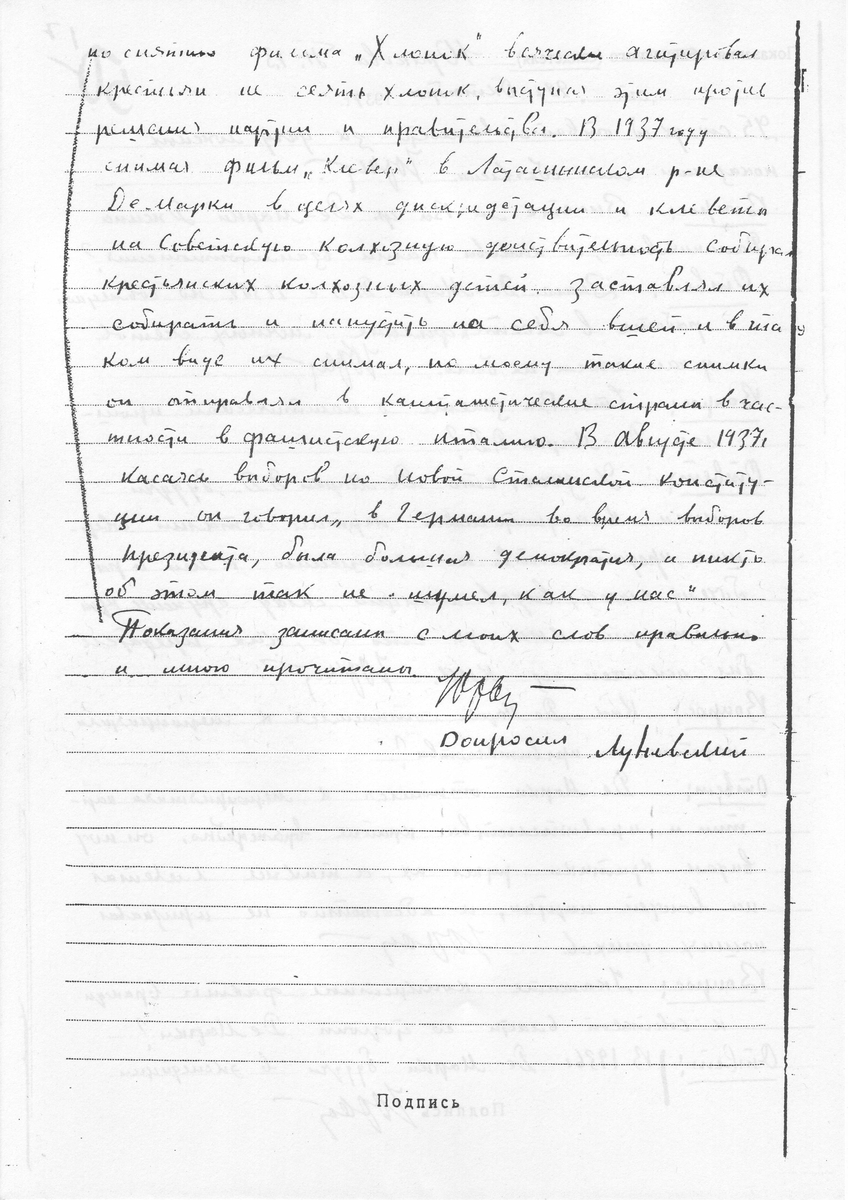 по снятию фильма „Хлопок" всячески агитировал
крестьян не сеять хлопк, выступая этим против
решения партии и правительства. В 1937 году
снимая фильм „Клевер" в Лотошинском р-не
Де Марки в целях дискридетации и клеветы
на Советскую колхозную действительность собирал
крестьянских колхозных детей. заставлял их
собирать и напустить на себя вшей и в та
ком виде их снимал, по моему такие снимки
он отправлял в капиталистические страны в час-
тности в фашистскую италию. В Августе 1937г
касаясь выборов по новой Сталинской конститу-
ции он говорил „в Германии во время выборов
президента, была большая демократия, и никто
об этом так не шумел, как у нас"
Показания записаны с моих слов правильно
и мною прочитаны.
Допросил
Подпись